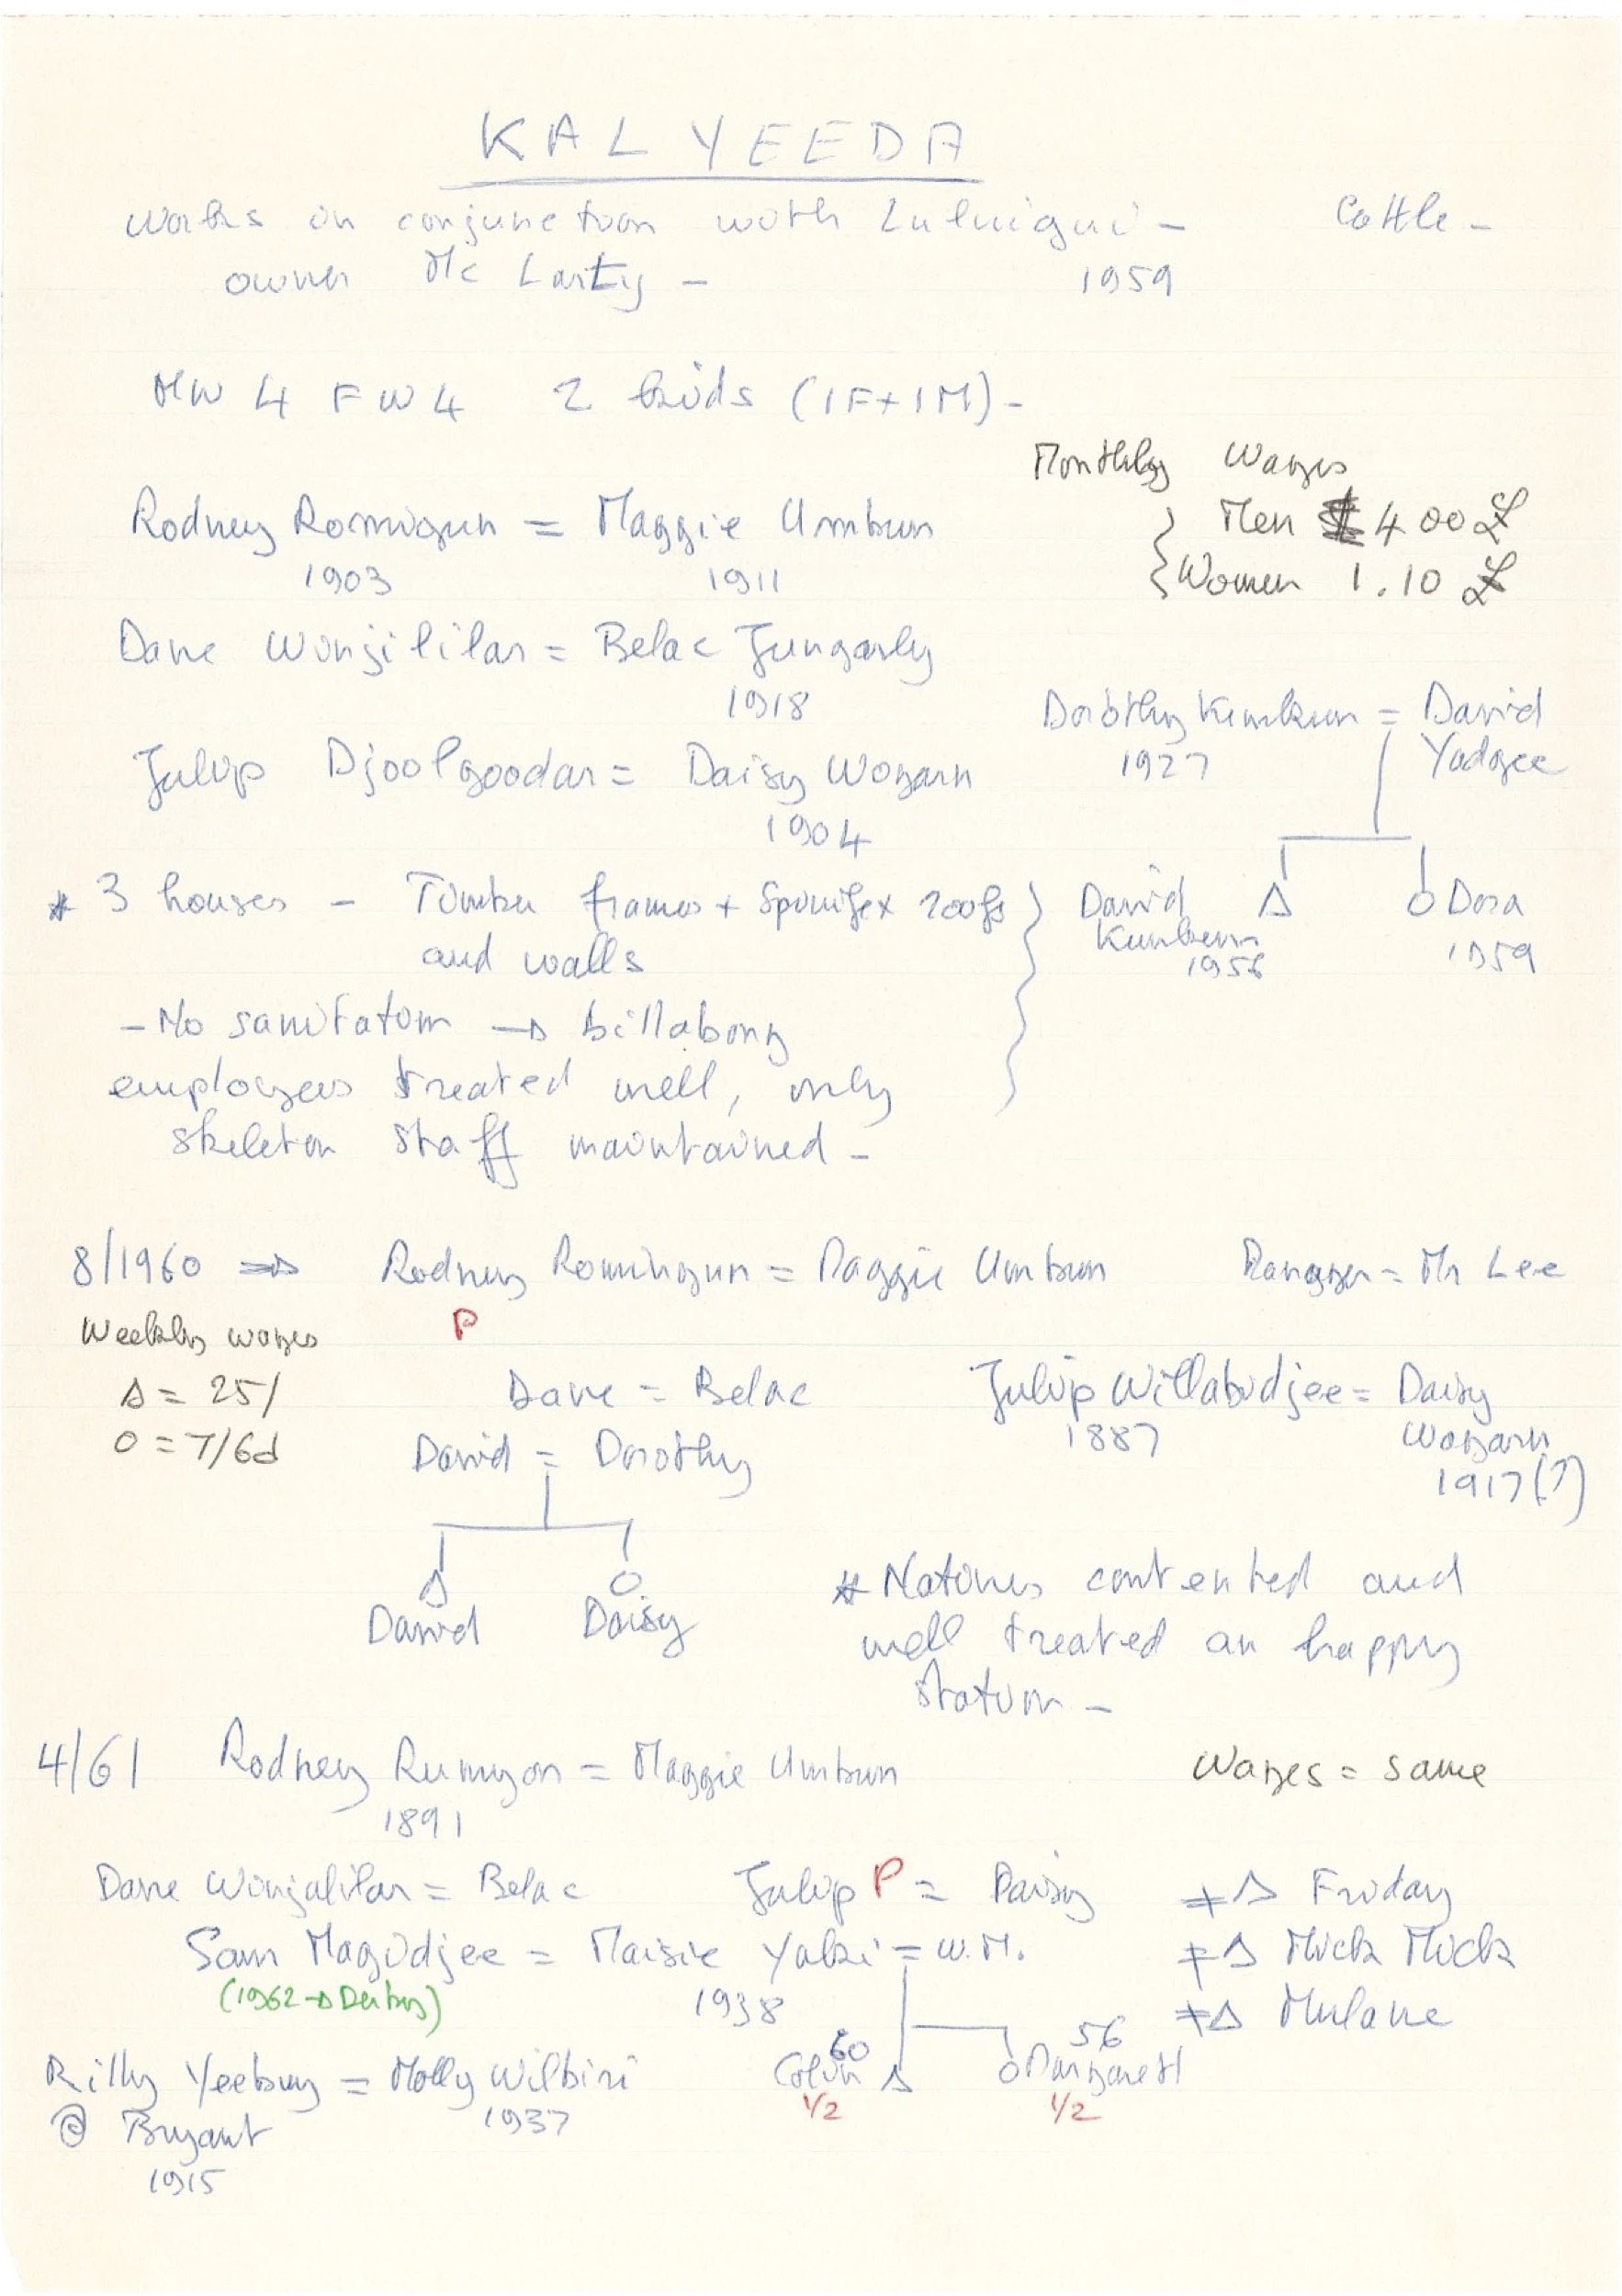 KALYEEDA
Works in conjunction with Luluigui - Cattle -
owner Mc Larty - 1959
MW 4 FW4 2 kids (1F+1M) -
Monthly Wages
Men 4 00 £
Women 1.10 £
Rodney Romigun = Maggie Umbun
1903 1911
Dave Wonjililar = Belac Jungarly
1918
Dorothy Kumkun = David
1927 Yadgee
Julup Djoolgoodar = Daisy Wogarn
1904
* 3 houses - Timber frames + Spinifex roofs
and walls
David Δ O Dora
1959
- No sanitation → billabong
employees treated well, only
skeleton staff maintained -
8/1960 ⇒ Rodney Romingun = Maggie Umbun Manager = Mr Lee
Weekly wages P
Δ = 25/ Dave = Belac Julup Willabidjee = Daisy
O = 7/6d David = Dorothy 1887 Wogarn
1917(?)
Δ O
David Daisy
* Natives contented and
well treated an happy
station -
4/61 Rodney Rumyon = Maggie Umbun Wages = same
1891
Dave Wonjalilar = Belac Julup P = Daisy ≠ Δ Friday
Sam Magidjee = Maisie Yabi = W.M. ≠ Δ Mick Mick
(1962 → Derby) 1938 ≠ Δ Mulane
60 56
Billy Yeebuy = Molly Wilbiri Colin Δ O Margaret
@ Bryant 1937 1/2 1/2
1915